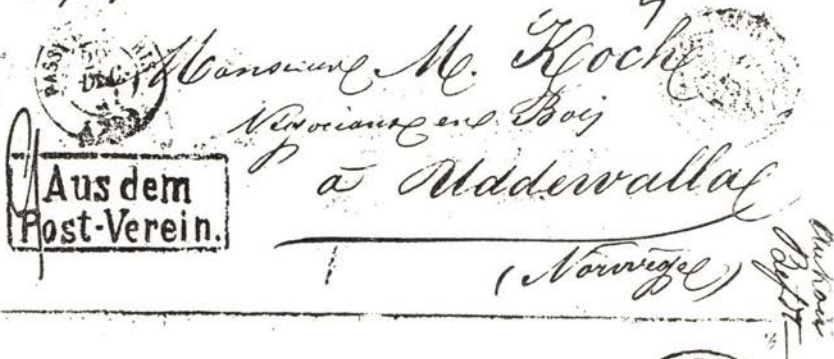 Monsieur M. Koch
Négociant en Bois
à Uddewalla
(Norvège)
Aus dem
Post-Verein.
DEC